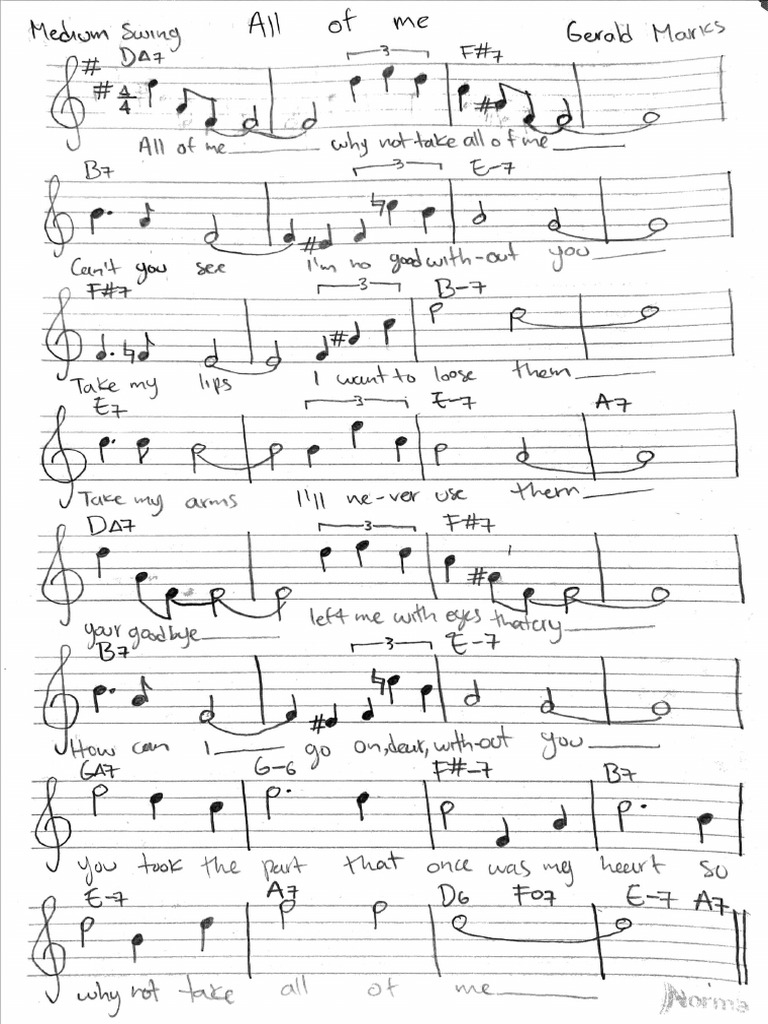 All of me
Medium Swing
Gerald Marks
D∆7 F#7
3
4/4
All of me why not take all of me
B7 3 E-7
Can't you see I'm no good with-out you
F#7 3 B-7
Take my lips I want to loose them
E7 3 E-7 A7
Take my arms I'll ne-ver use them
D∆7 3 F#7
your goodbye left me with eyes that cry
B7 3 E-7
How can I go on, dear, with-out you
G∆7 G-6 F#-7 B7
you took the part that once was my heart so
E-7 A7 D6 F07 E-7 A7
why not take all of me
Norma